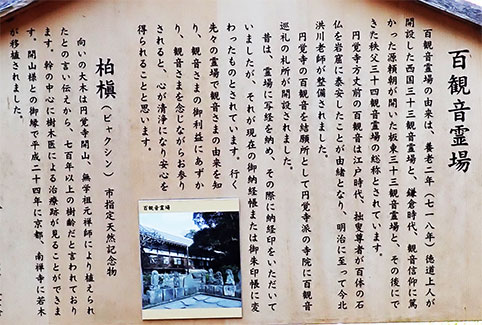 百観音霊場
百観音霊場の由来は、養老二年（七一八年）徳道上人が
開設した西国三十三観音霊場と、鎌倉時代、観音信仰に篤
かった源頼朝が開いた坂東三十三観音霊場と、その後にで
きた秩父三十四観音霊場の総称とされています。
円覚寺方丈前の百観音は江戸時代、拙叟尊者が百体の石
仏を岩窟に奉安したことが由緒となり、明治に至って今北
洪川老師が整備されました。
円覚寺の百観音を結願所として円覚寺派の寺院に百観音
巡礼の札所が開設されました。
昔は、霊場に写経を納め、その際に納経印をいただいて
いましたが、それが現在の御納経帳または御朱印帳に変
わったものとされています。行く
先々の霊場で観音さまの由来を知
り、観音さまの御利益にあずか
り、観音さまを念じながらお参り
されると、心が清浄になり安心を
得られることと思います。
柏槇（ビャクシン）市指定天然記念物
向いの大木は円覚寺開山、無学祖元禅師により植えられ
たとの言い伝えから、七百年以上の樹齢だと言われており
ます。幹の中心に樹木医による治療跡が見ることができま
す。開山様との御縁で平成二十四年に京都、南禅寺に若木
が移植されました。
百観音霊場